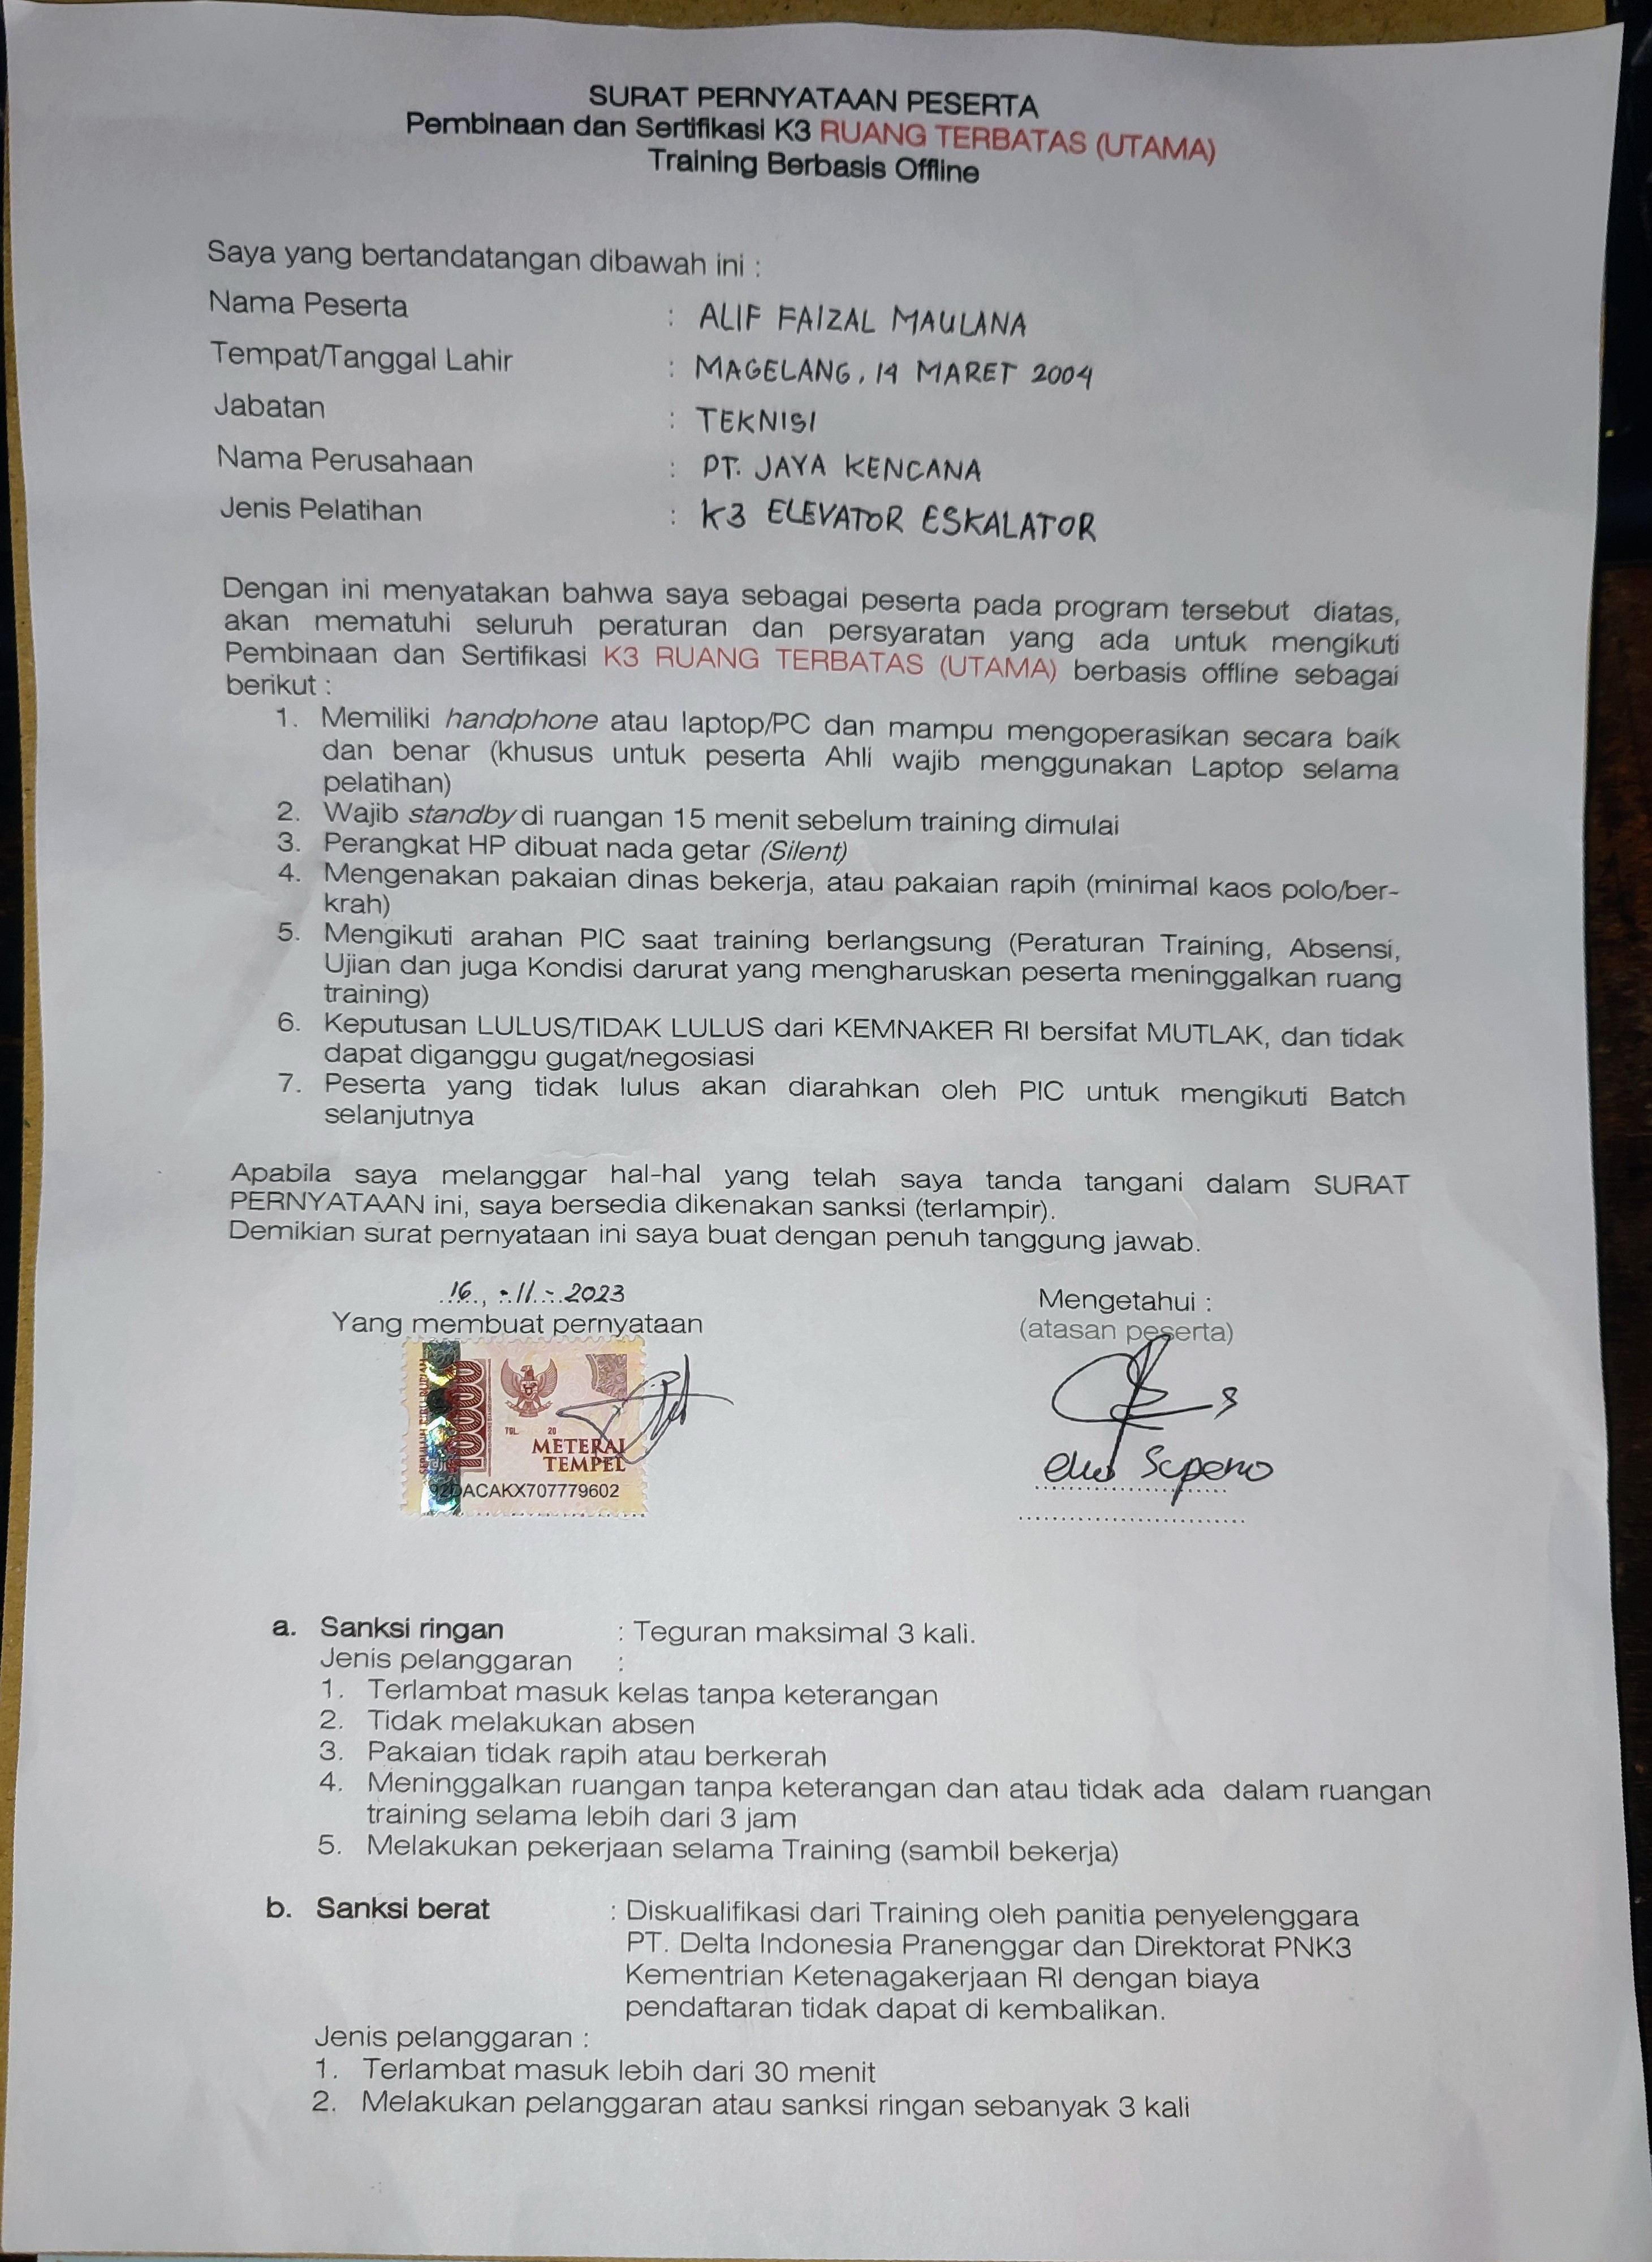 SURAT PERNYATAAN PESERTA
Pembinaan dan Sertifikasi K3 RUANG TERBATAS (UTAMA)
Training Berbasis Offline
Saya yang bertandatangan dibawah ini :
Nama Peserta : ALIF FAIZAL MAULANA
Tempat/Tanggal Lahir : MAGELANG, 14 MARET 2004
Jabatan : TEKNISI
Nama Perusahaan : PT. JAYA KENCANA
Jenis Pelatihan : K3 ELEVATOR ESKALATOR
Dengan ini menyatakan bahwa saya sebagai peserta pada program tersebut diatas,
akan mematuhi seluruh peraturan dan persyaratan yang ada untuk mengikuti
Pembinaan dan Sertifikasi K3 RUANG TERBATAS (UTAMA) berbasis offline sebagai
berikut :
1. Memiliki handphone atau laptop/PC dan mampu mengoperasikan secara baik
dan benar (khusus untuk peserta Ahli wajib menggunakan Laptop selama
pelatihan)
2. Wajib standby di ruangan 15 menit sebelum training dimulai
3. Perangkat HP dibuat nada getar (Silent)
4. Mengenakan pakaian dinas bekerja, atau pakaian rapih (minimal kaos polo/ber-
krah)
5. Mengikuti arahan PIC saat training berlangsung (Peraturan Training, Absensi,
Ujian dan juga Kondisi darurat yang mengharuskan peserta meninggalkan ruang
training)
6. Keputusan LULUS/TIDAK LULUS dari KEMNAKER RI bersifat MUTLAK, dan tidak
dapat diganggu gugat/negosiasi
7. Peserta yang tidak lulus akan diarahkan oleh PIC untuk mengikuti Batch
selanjutnya
Apabila saya melanggar hal-hal yang telah saya tanda tangani dalam SURAT
PERNYATAAN ini, saya bersedia dikenakan sanksi (terlampir).
Demikian surat pernyataan ini saya buat dengan penuh tanggung jawab.
16, - 11 - 2023
Yang membuat pernyataan
Mengetahui :
(atasan peserta)
10000
TGL. 20
METERAI
TEMPEL
92DACAKX707779602
a. Sanksi ringan : Teguran maksimal 3 kali.
Jenis pelanggaran :
1. Terlambat masuk kelas tanpa keterangan
2. Tidak melakukan absen
3. Pakaian tidak rapih atau berkerah
4. Meninggalkan ruangan tanpa keterangan dan atau tidak ada dalam ruangan
training selama lebih dari 3 jam
5. Melakukan pekerjaan selama Training (sambil bekerja)
b. Sanksi berat : Diskualifikasi dari Training oleh panitia penyelenggara
PT. Delta Indonesia Pranenggar dan Direktorat PNK3
Kementrian Ketenagakerjaan RI dengan biaya
pendaftaran tidak dapat di kembalikan.
Jenis pelanggaran :
1. Terlambat masuk lebih dari 30 menit
2. Melakukan pelanggaran atau sanksi ringan sebanyak 3 kali